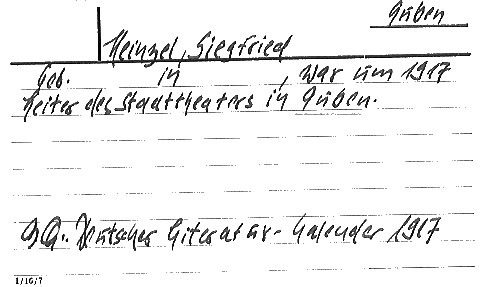 Guben
Heinzel, Siegfried
Geb. in , war um 1917
Leiter des Stadttheaters in Guben.
BQ.. Deutscher Literatur-Kalender 1917
1/10/7